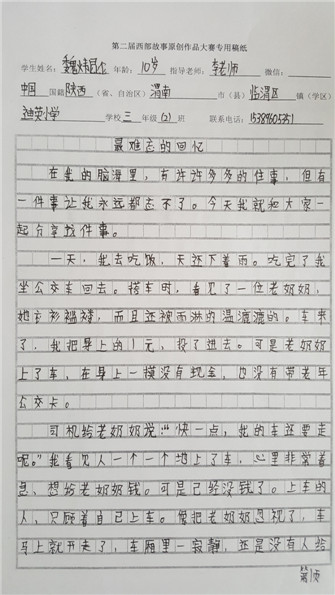 第二届西部故事原创作品大赛专用稿纸
学生姓名： 年龄：10岁 指导老师：李老师 微信：
中国 国籍 陕西 （省、自治区） 渭南 市（县） 临渭区 镇（学区）
迪英小学 学校 三 年级 (2) 班 联系电话：
最难忘的回忆
在我的脑海里，有许许多多的往事，但有
一件事让我永远都忘不了。今天我就和大家一
起分享这件事。
一天，我去吃饭，天还下着雨。吃完了我
坐公交车回去。搭车时，看见了一位老奶奶，
她衣衫褴褛，而且还被雨淋的湿漉漉的。车来
了，我把身上的1元，投了进去。可是老奶奶
上了车，在身上一摸没有现金，也没有带老年
公交卡。
司机给老奶奶说：“快一点，我的车还要走
呢。”我看见人一个一个地上了车，心里非常着
急，想给老奶奶钱。可是已经没钱了。上车的
人，只顾着自己上车。像把老奶奶忽视了，车
马上就开走了，车厢里一寂静，还是没有人给
第1页